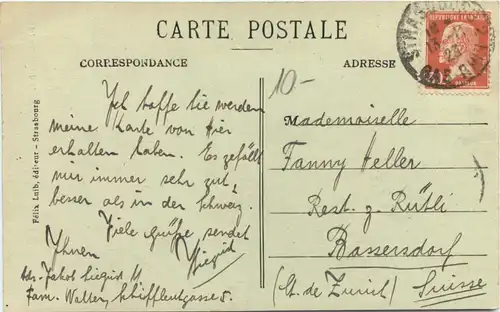 CARTE POSTALE
CORRESPONDANCE
ADRESSE
10-
REPUBLIQUE FRANÇAISE
STRASBOURG
GARE
Félix Luib, éditeur - Strasbourg
Ich hoffe Sie werden
meine Karte von hier
erhalten haben. Es gefällt
mir immer sehr gut,
besser als in der Schweiz.
Viele Grüße sendet
Ihnen
Siegrid
Adr. Jakob Siegrid
Fam. Walter, Schiffleutgasse 5.
Mademoiselle
Fanny Heller
Rest. z. Rütli
Bassersdorf
(Ct. de Zurich) Suisse